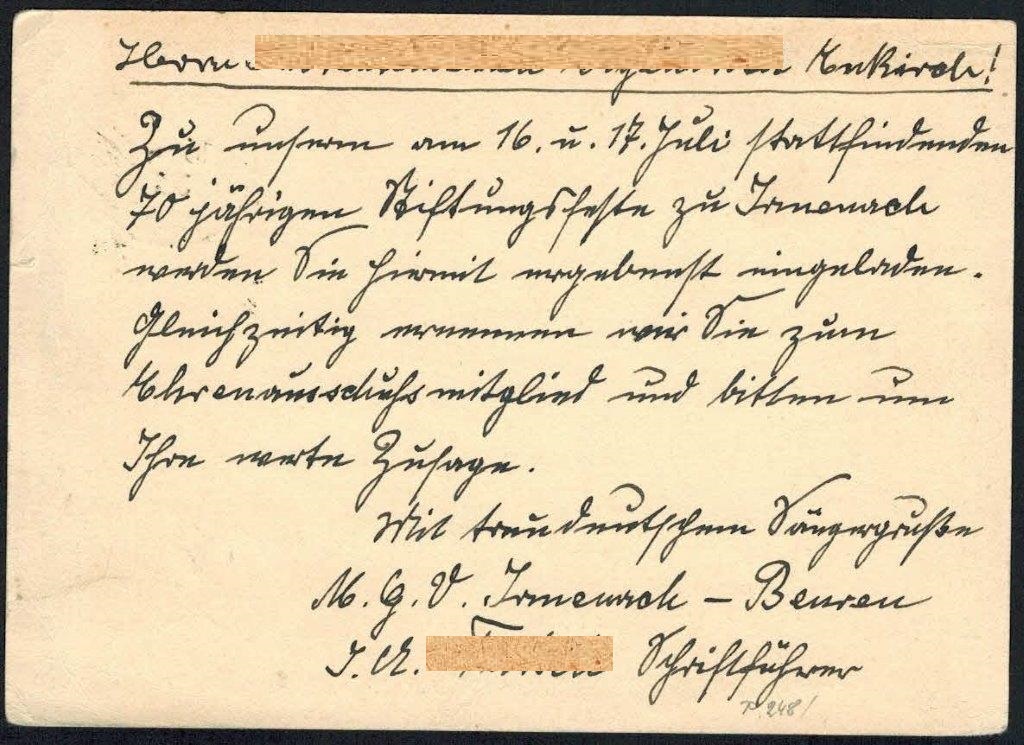 Herrn Enkirch!
Zu unserm am 16. u. 17. Juli stattfindenden
70 jährigen Stiftungsfeste zu Irmenach
werden Sie hiermit ergebenst eingeladen.
Gleichzeitig ernennen wir Sie zum
Ehrenausschußmitglied und bitten um
Ihre werte Zusage.
Mit treudeutschem Sängergruße
M. G. V. Irmenach – Beuren
I. A. Schriftführer
248/